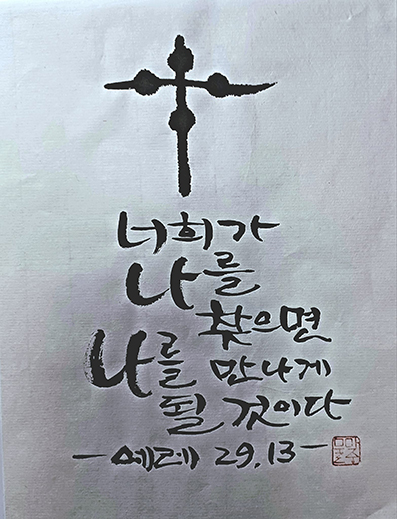 너희가
나를
찾으면
나를 만나게
될 것이다
-예레 29,13-